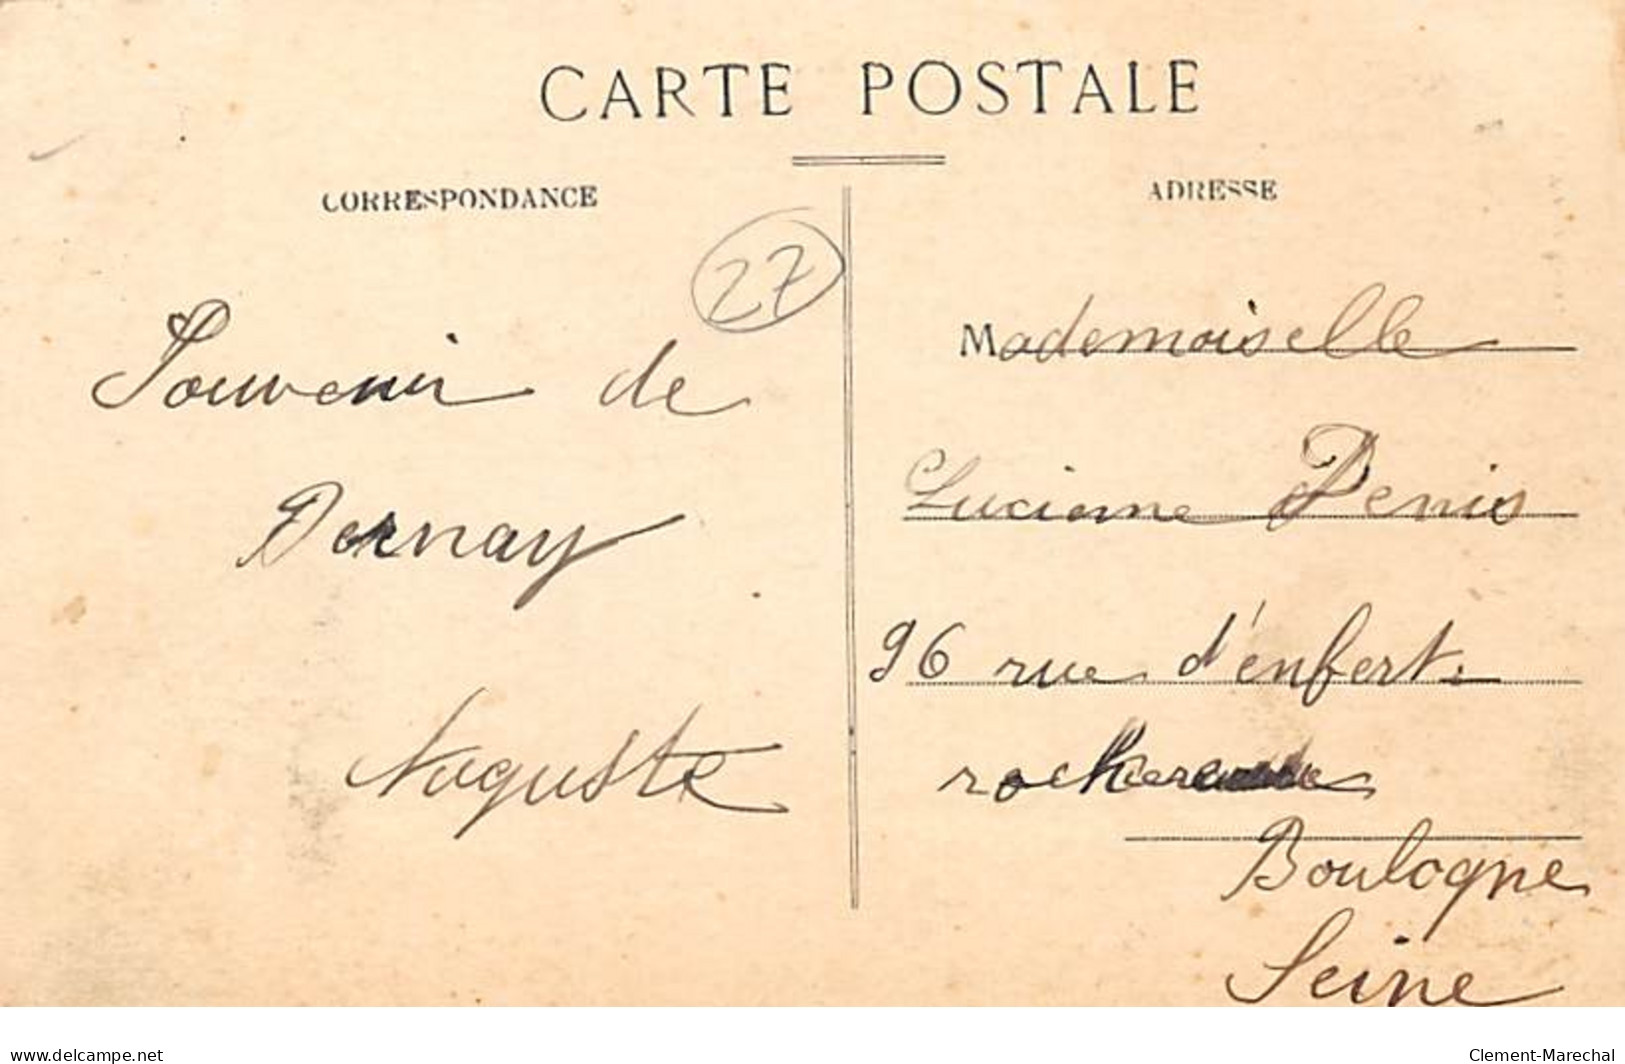 CARTE POSTALE
CORRESPONDANCE
27
Souvenir de
Dernay
Auguste
ADRESSE
Mademoiselle
Lucienne Denis
96 rue d'enfert.
Boulogne
Seine
www.delcampe.net
Clement-Marechal